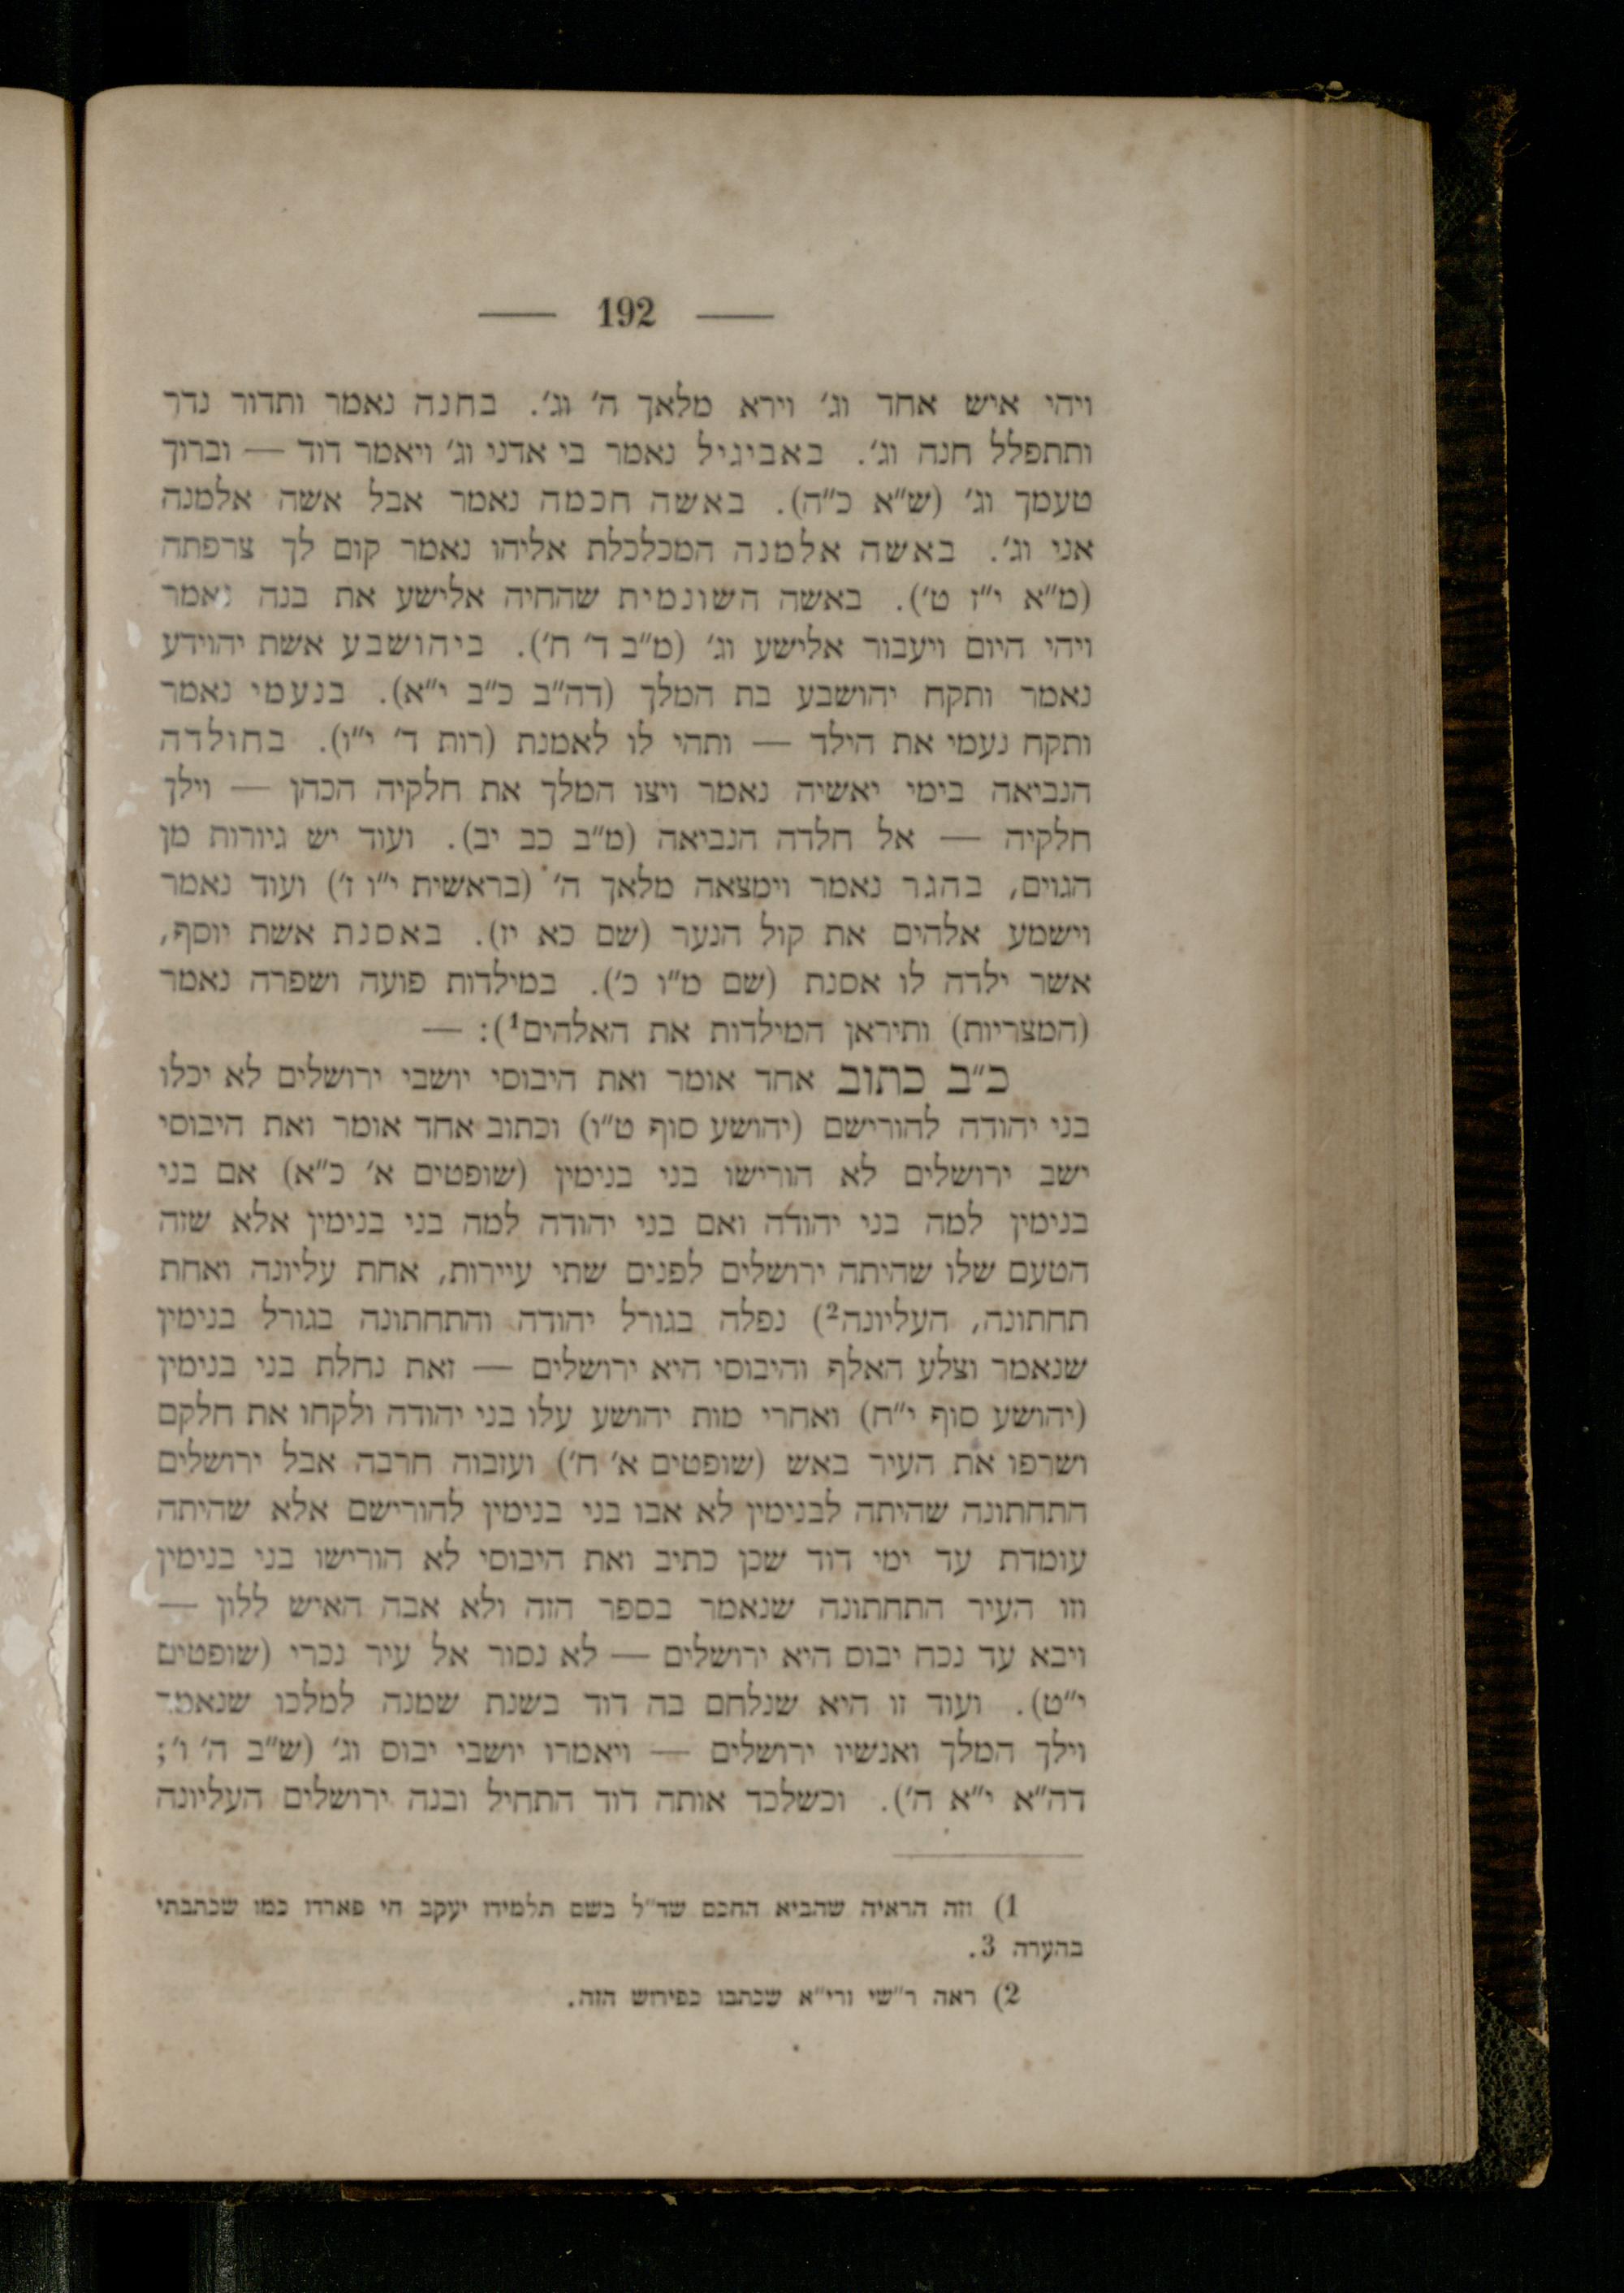 — 192 —
ויהי איש אחד וג׳ וירא מלאך ה׳ וג׳. בחנה נאמר ותדור נדר
ותתפלל חנה וג׳. באביגיל נאמר בי אדני וג׳ ויאמר דוד — וברוך
טעמך וג׳ (ש״א כ״ה). באשה חכמה נאמר אבל אשה אלמנה
אני וג׳. באשה אלמנה המכלכלת אליהו נאמר קום לך צרפתה
(מ״א י״ז ט׳). באשה השונמית שהחיה אלישע את בנה נאמר
ויהי היום ויעבור אלישע וג׳ (מ״ב ד׳ ח׳). ביהושבע אשת יהוידע
נאמר ותקח יהושבע בת המלך (דה״ב כ״ב י״א). בנעמי נאמר
ותקח נעמי את הילד — ותהי לו לאמנת (רות ד׳ י״ו). בחולדה
הנביאה בימי יאשיה נאמר ויצו המלך את חלקיה הכהן — וילך
חלקיה — אל חלדה הנביאה (מ״ב כב יב). ועוד יש גיורות מן
הגוים, בהגר נאמר וימצאה מלאך ה׳ (בראשית י״ו ז׳) ועוד נאמר
וישמע אלהים את קול הנער (שם כא יז). באסנת אשת יוסף,
אשר ילדה לו אסנת (שם מ״ו כ׳). במילדות פועה ושפרה נאמר
(המצריות) ותיראן המילדות את האלהים1): —
כ״ב כתוב אחד אומר ואת היבוסי יושבי ירושלים לא יכלו
בני יהודה להורישם (יהושע סוף ט״ו) וכתוב אחד אומר ואת היבוסי
ישב ירושלים לא הורישו בני בנימין (שופטים א׳ כ״א) אם בני
בנימין למה בני יהודה ואם בני יהודה למה בני בנימין אלא שזה
הטעם שלו שהיתה ירושלים לפנים שתי עיירות, אחת עליונה ואחת
תחתונה, העליונה2) נפלה בגורל יהודה והתחתונה בגורל בנימין
שנאמר וצלע האלף והיבוסי היא ירושלים — זאת נחלת בני בנימין
(יהושע סוף י״ח) ואחרי מות יהושע עלו בני יהודה ולקחו את חלקם
ושרפו את העיר באש (שופטים א׳ ח׳) ועזבוה חרבה אבל ירושלים
התחתונה שהיתה לבנימין לא אבו בני בנימין להורישם אלא שהיתה
עומדת עד ימי דוד שכן כתיב ואת היבוסי לא הורישו בני בנימין
וזו העיר התחתונה שנאמר בספר הזה ולא אבה האיש ללון —
ויבא עד נכח יבוס היא ירושלים — לא נסור אל עיר נכרי (שופטים
י״ט). ועוד זו היא שנלחם בה דוד בשנת שמנה למלכו שנאמר
וילך המלך ואנשיו ירושלים — ויאמרו יושבי יבוס וג׳ (ש״ב ה׳ ו׳;
דה״א י״א ה׳). וכשלכד אותה דוד התחיל ובנה ירושלים העליונה
1) וזה הראיה שהביא החכם שד״ל בשם תלמידו יעקב חי פארדו כמו שכתבתי
בהערה 3.
2) ראה ר״שי ורי״א שכתבו כפירוש הזה.